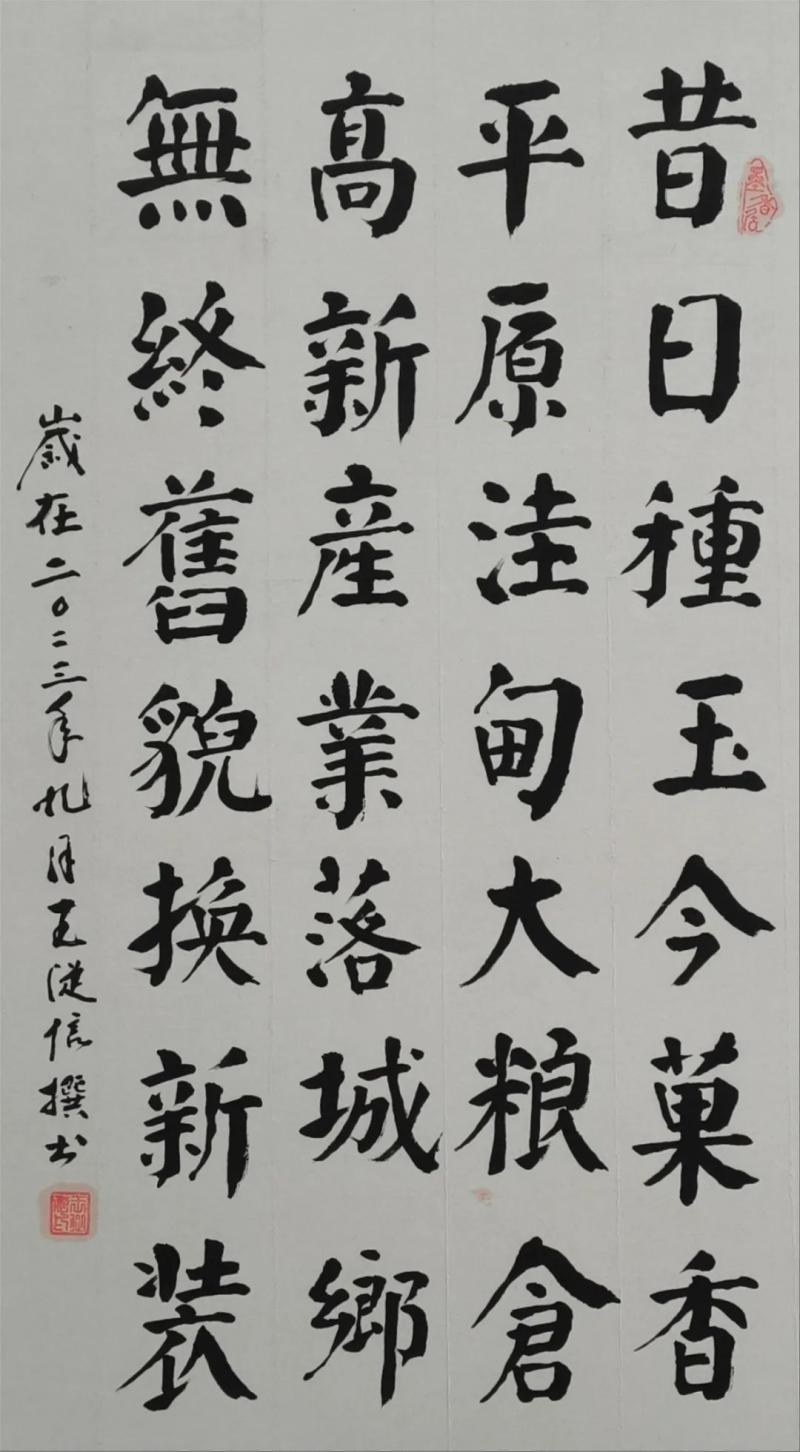 昔日種玉今菓香
平原洼甸大粮倉
高新産業落城鄉
無終舊貌換新装
歲在二〇二三年九月王從信撰书